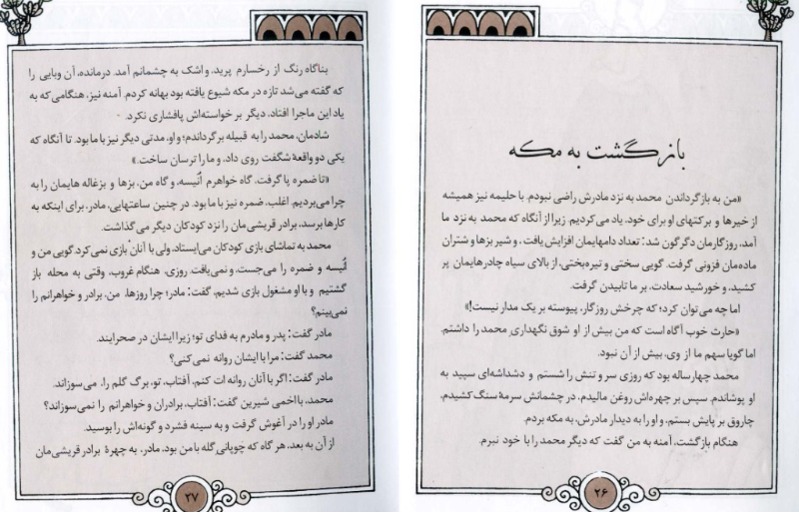 بازگشت به مکه
«من به بازگرداندن محمد به نزد مادرش راضی نبودم. با حلیمه نیز همیشه
از خیرها و برکتهای او برای خود، یاد می‌کردیم. زیرا از آنگاه که محمد به نزد ما
آمد، روزگارمان دگرگون شد: تعداد دامهایمان افزایش یافت، و شیر بزها و شتران
ماده‌مان فزونی گرفت. گویی سختی و تیره‌بختی، از بالای سیاه چادرهایمان پر
کشید، و خورشید سعادت، بر ما تابیدن گرفت.
اما چه می‌توان کرد؛ که چرخش روزگار، پیوسته بر یک مدار نیست!»
«حارث خوب آگاه است که من بیش از او شوق نگهداری محمد را داشتم.
اما گویا سهم ما از وی، بیش از آن نبود.
محمد چهارساله بود که روزی سر و تنش را شستم و دشداشه‌ای سپید به
او پوشاندم. سپس بر چهره‌اش روغن مالیدم. در چشمانش سرمهٔ سنگ کشیدم.
چاروق بر پایش بستم، و او را به دیدار مادرش، به مکه بردم.
هنگام بازگشت، آمنه به من گفت که دیگر محمد را با خود نبرم.
۲۶
بناگاه رنگ از رخسارم پرید، و اشک به چشمانم آمد. درمانده، آن وبایی را
که گفته می‌شد تازه در مکه شیوع یافته بود بهانه کردم. آمنه نیز، هنگامی که به
یاد این ماجرا افتاد، دیگر بر خواسته‌اش پافشاری نکرد.
شادمان، محمد را به قبیله برگرداندم؛ و او، مدتی دیگر نیز با ما بود. تا آنگاه که
یکی دو واقعهٔ شگفت روی داد، و ما را ترسان ساخت.»
«تا ضمره پا گرفت، گاه خواهرم اُنَیسه، و گاه من، بزها و بزغاله هایمان را به
چرا می‌بردیم. اغلب، ضمره نیز با ما بود. در چنین ساعتهایی، مادر، برای اینکه به
کارها برسد، برادر قریشی‌مان را نزد کودکان دیگر می‌گذاشت.
محمد به تماشای بازی کودکان می‌ایستاد، ولی با آنان بازی نمی‌کرد. گویی من و
اُنَیسه و ضمره را می‌جست، و نمی‌یافت. روزی، هنگام غروب، وقتی به محله باز
گشتیم و با او مشغول بازی شدیم، گفت: مادر؛ چرا روزها، من، برادر و خواهرانم را
نمی‌بینم؟
مادر گفت: پدر و مادرم به فدای تو؛ زیرا ایشان در صحرایند.
محمد گفت: مرا با ایشان روانه نمی‌کنی؟
مادر گفت: اگر با آنان روانه ات کنم، آفتاب، تو، برگ گلم را، می‌سوزاند.
محمد، با اخمی شیرین گفت: آفتاب، برادران و خواهرانم را نمی‌سوزاند؟
مادر او را در آغوش گرفت و به سینه فشرد و گونه‌اش را بوسید.
از آن به بعد، هر گاه که چوپانی گله با من بود، مادر، به چهرهٔ برادر قریشی‌مان
۲۷